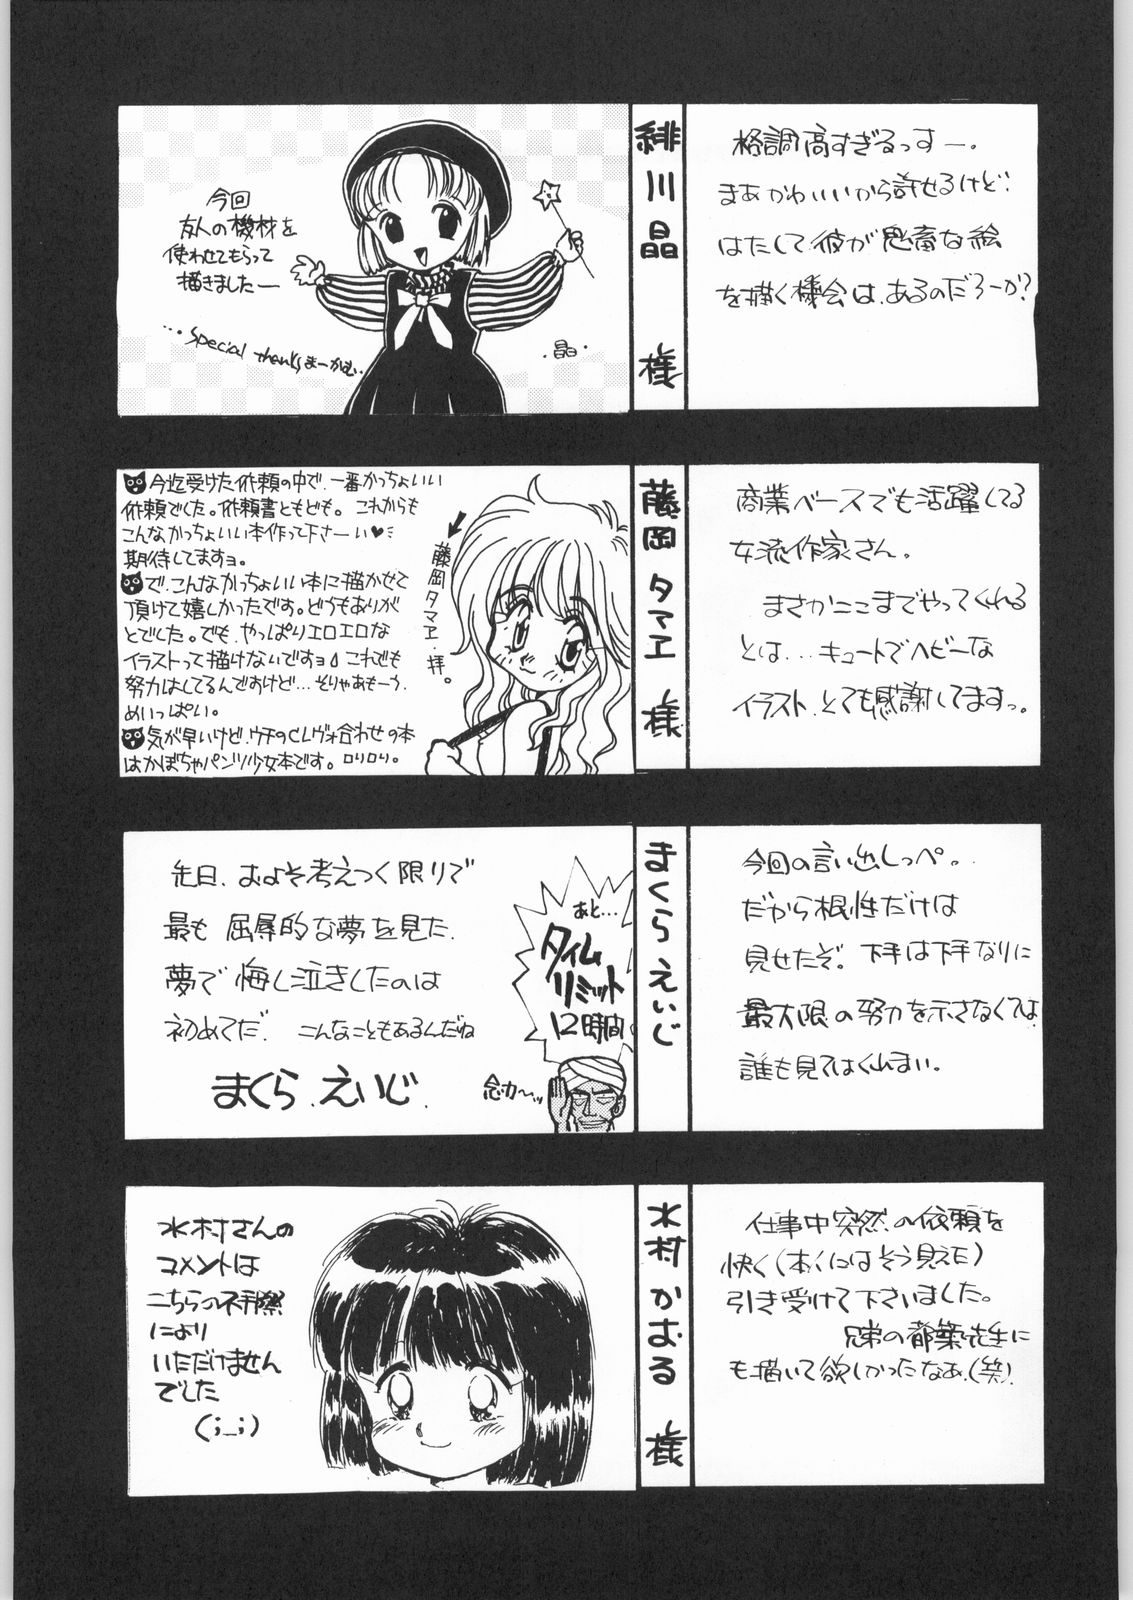 今回
友人の機材を
使わせてもらって
描きましたー
…special thanks まーかむ…
・晶・
緋川晶 様
格調高すぎるっすー。
まあかわいいから許せるけど…
はたして彼が
な絵
を描く機会は、あるのだろーか?
今迄受けた依頼の中で、一番かっちょいい
依頼でした。依頼書ともども。これからも
こんなかっちょいい本作って下さーい♥
期待してますョ。
で、こんなかっちょいい本に描かせて
頂けて嬉しかったです。どうもありが
とでした。でも、やっぱりエロエロな
イラストって描けないですョ これでも
努力はしてるんですけど…そりゃあもーう、
めいっぱい。
気が早いけど、ウチのCレヴォ合わせの本
はかぼちゃパンツ少女本です。ロリロリ。
藤岡タマヱ・拝。
藤岡タマヱ 様
商業ベースでも活躍してる
女流作家さん。
まさかここまでやってくれる
とは…キュートでヘビーな
イラスト、とても感謝してますっ。
先日、およそ考えつく限りで
最も屈辱的な夢を見た。
夢で悔し泣きしたのは
初めてだ。こんなこともあるんだね
まくら.えいじ.
あと…
タイム
リミット
12時間
念力〜ッ
まくらえいじ
今回の言い出しっぺ。
だから根性だけは
見せたぞ。下手は下手なりに
最大限の努力を示さなくては、
誰も見てはくれまい。
水村さんの
コメントは
こちらの不手際
により
いただけません
でした
(;_;)
水村かおる 様
仕事中突然の依頼を
快く(本人にはそう見えた)
引き受けて下さいました。
兄弟の都築先生に
も描いて欲しかったなあ.(笑)